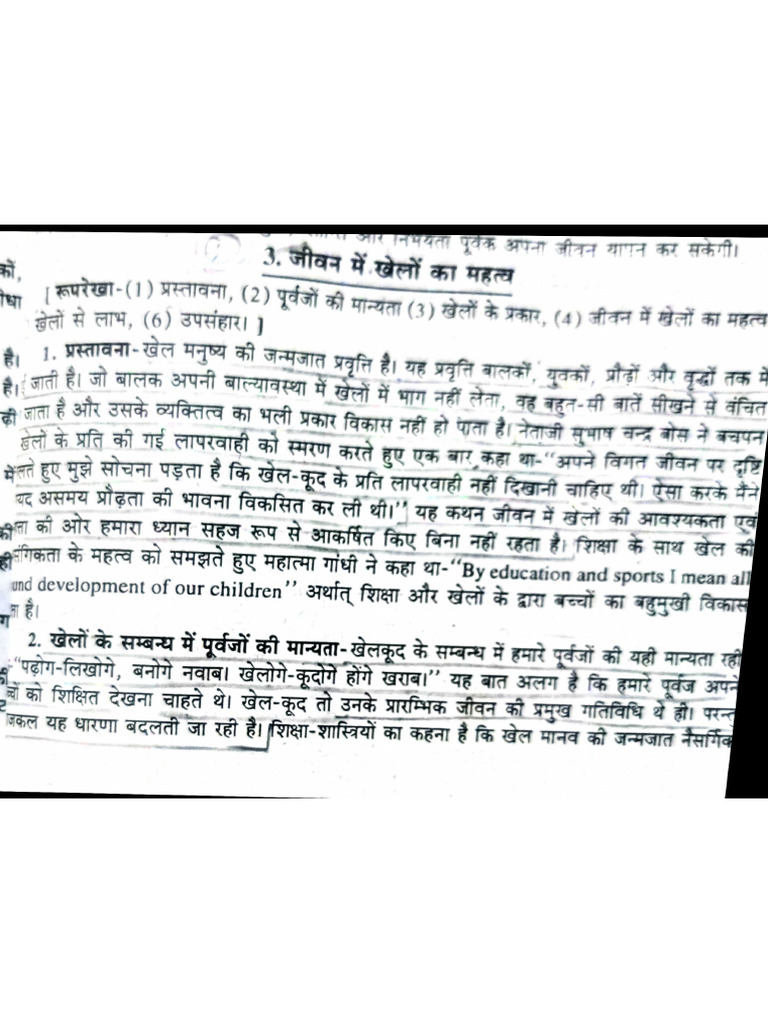 और निर्भयता पूर्वक अपना जीवन यापन कर सकेगी।
3. जीवन में खेलों का महत्व
कों,
[ रूपरेखा-(1) प्रस्तावना, (2) पूर्वजों की मान्यता (3) खेलों के प्रकार, (4) जीवन में खेलों का महत्व
खेलों से लाभ, (6) उपसंहार। ]
है। 1. प्रस्तावना-खेल मनुष्य की जन्मजात प्रवृत्ति है। यह प्रवृत्ति बालकों, युवकों, प्रौढ़ों और वृद्धों तक में
है। जाती है। जो बालक अपनी बाल्यावस्था में खेलों में भाग नहीं लेता, वह बहुत-सी बातें सीखने से वंचित
जाता है और उसके व्यक्तित्व का भली प्रकार विकास नहीं हो पाता है। नेताजी सुभाष चन्द्र बोस ने बचपन
खेलों के प्रति की गई लापरवाही को स्मरण करते हुए एक बार कहा था-“अपने विगत जीवन पर दृष्टि
में लते हुए मुझे सोचना पड़ता है कि खेल-कूद के प्रति लापरवाही नहीं दिखानी चाहिए थी। ऐसा करके मैंने
यद असमय प्रौढ़ता की भावना विकसित कर ली थी।” यह कथन जीवन में खेलों की आवश्यकता एवं
की ता की ओर हमारा ध्यान सहज रूप से आकर्षित किए बिना नहीं रहता है। शिक्षा के साथ खेल की
ही संगिकता के महत्व को समझते हुए महात्मा गांधी ने कहा था-“By education and sports I mean all
und development of our children” अर्थात् शिक्षा और खेलों के द्वारा बच्चों का बहुमुखी विकास
ग ता है।
2. खेलों के सम्बन्ध में पूर्वजों की मान्यता-खेलकूद के सम्बन्ध में हमारे पूर्वजों की यही मान्यता रही
“पढ़ोग-लिखोगे, बनोगे नवाब। खेलोगे-कूदोगे होंगे खराब।” यह बात अलग है कि हमारे पूर्वज अपने
चों को शिक्षित देखना चाहते थे। खेल-कूद तो उनके प्रारम्भिक जीवन की प्रमुख गतिविधि थे ही। परन्तु
जकल यह धारणा बदलती जा रही है। शिक्षा-शास्त्रियों का कहना है कि खेल मानव की जन्मजात नैसर्गिक